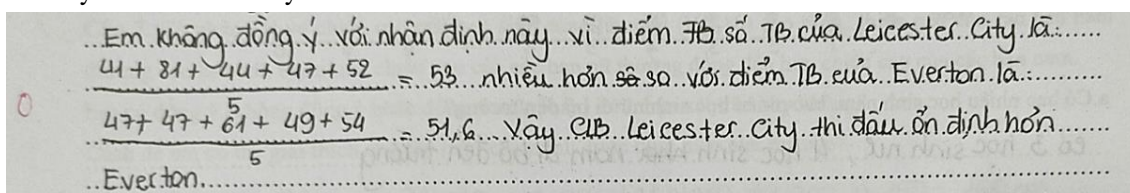 Em không đồng ý với nhân định này vì điểm TB số TB của Leicester City là:
41 + 81 + 44 + 47 + 52 / 5 = 53 nhiều hơn so với điểm TB của Everton là:
0 47 + 47 + 61 + 49 + 54 / 5 = 51,6 Vậy CLB Leicester City thi đấu ổn định hơn
Everton